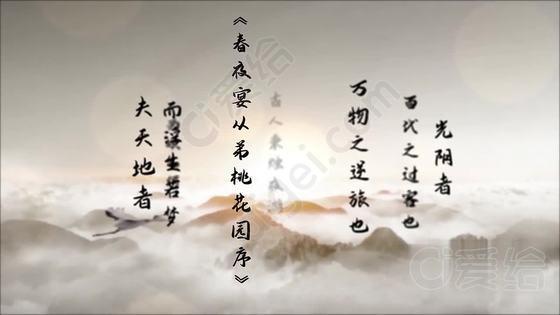 光阴者
百代之过客也
万物之逆旅也
古人秉烛夜游
《春夜宴从弟桃花园序》
而浮生若梦
夫天地者
爱给